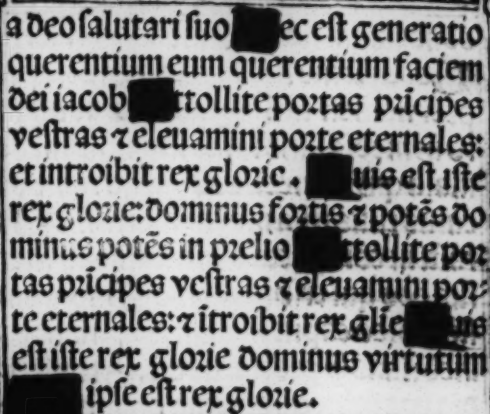 a deo salutari suo ec est generatio
querentium eum querentium faciem
dei iacob ttollite portas prīcipes
vestras ⁊ eleuamini porte eternales:
et introibit rex glorie. uis est iste
rex glorie: dominus fortis ⁊ potēs do
minus potēs in prelio ttollite por
tas prīcipes vestras ⁊ eleuamini por-
te eternales: ⁊ ītroibit rex gl'ie uis
est iste rex glorie dominus virtutum
ipse est rex glorie.